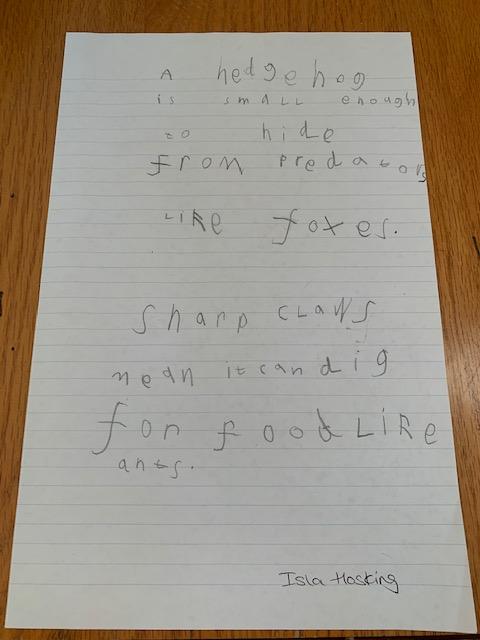 A hedgehog
is smaLL enough
to hide
from predators
LiKe foxes.
Sharp cLaws
mean it can dig
for food LiKe
ants.
Isla Hosking